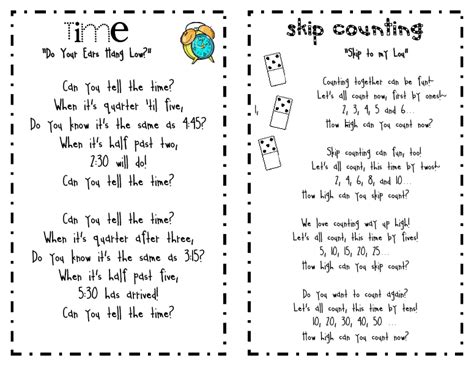 Time
"Do Your Ears Hang Low?"
Can you tell the time?
When it's quarter 'til five,
Do you know it's the same as 4:45?
When it's half past two,
2:30 will do!
Can you tell the time?
Can you tell the time?
When it's quarter after three,
Do you know it's the same as 3:15?
When it's half past five,
5:30 has arrived!
Can you tell the time?
skip counting
"Skip to my Lou"
Counting together can be fun~
Let's all count now, first by ones~
1, 2, 3, 4, 5 and 6...
How high can you count now?
Skip counting can fun, too!
Let's all count, this time by twos~
2, 4, 6, 8, and 10...
How high can you skip count?
We love counting way up high!
Let's all count, this time by fives!
5, 10, 15, 20, 25...
How high can you skip count?
Do you want to count again?
Let's all count, this time by tens!
10, 20, 30, 40, 50 ...
How high can you count now?